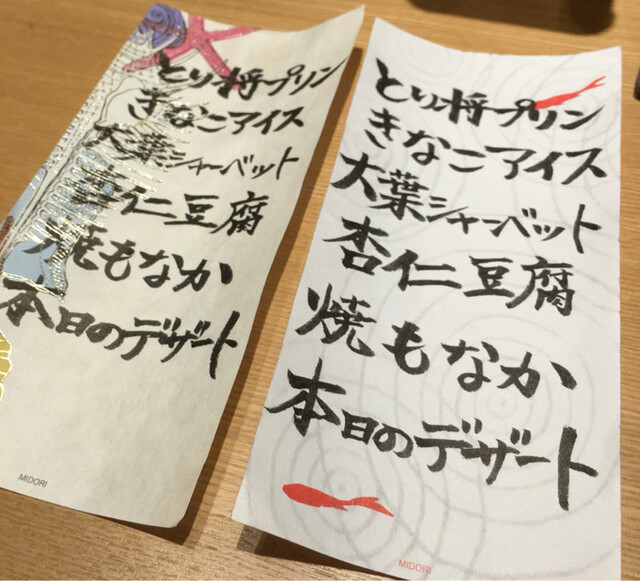 とり将プリン
きなこアイス
大葉シャーベット
杏仁豆腐
焼もなか
本日のデザート
MIDORI
とり将プリン
きなこアイス
大葉シャーベット
杏仁豆腐
焼もなか
本日のデザート
MIDORI